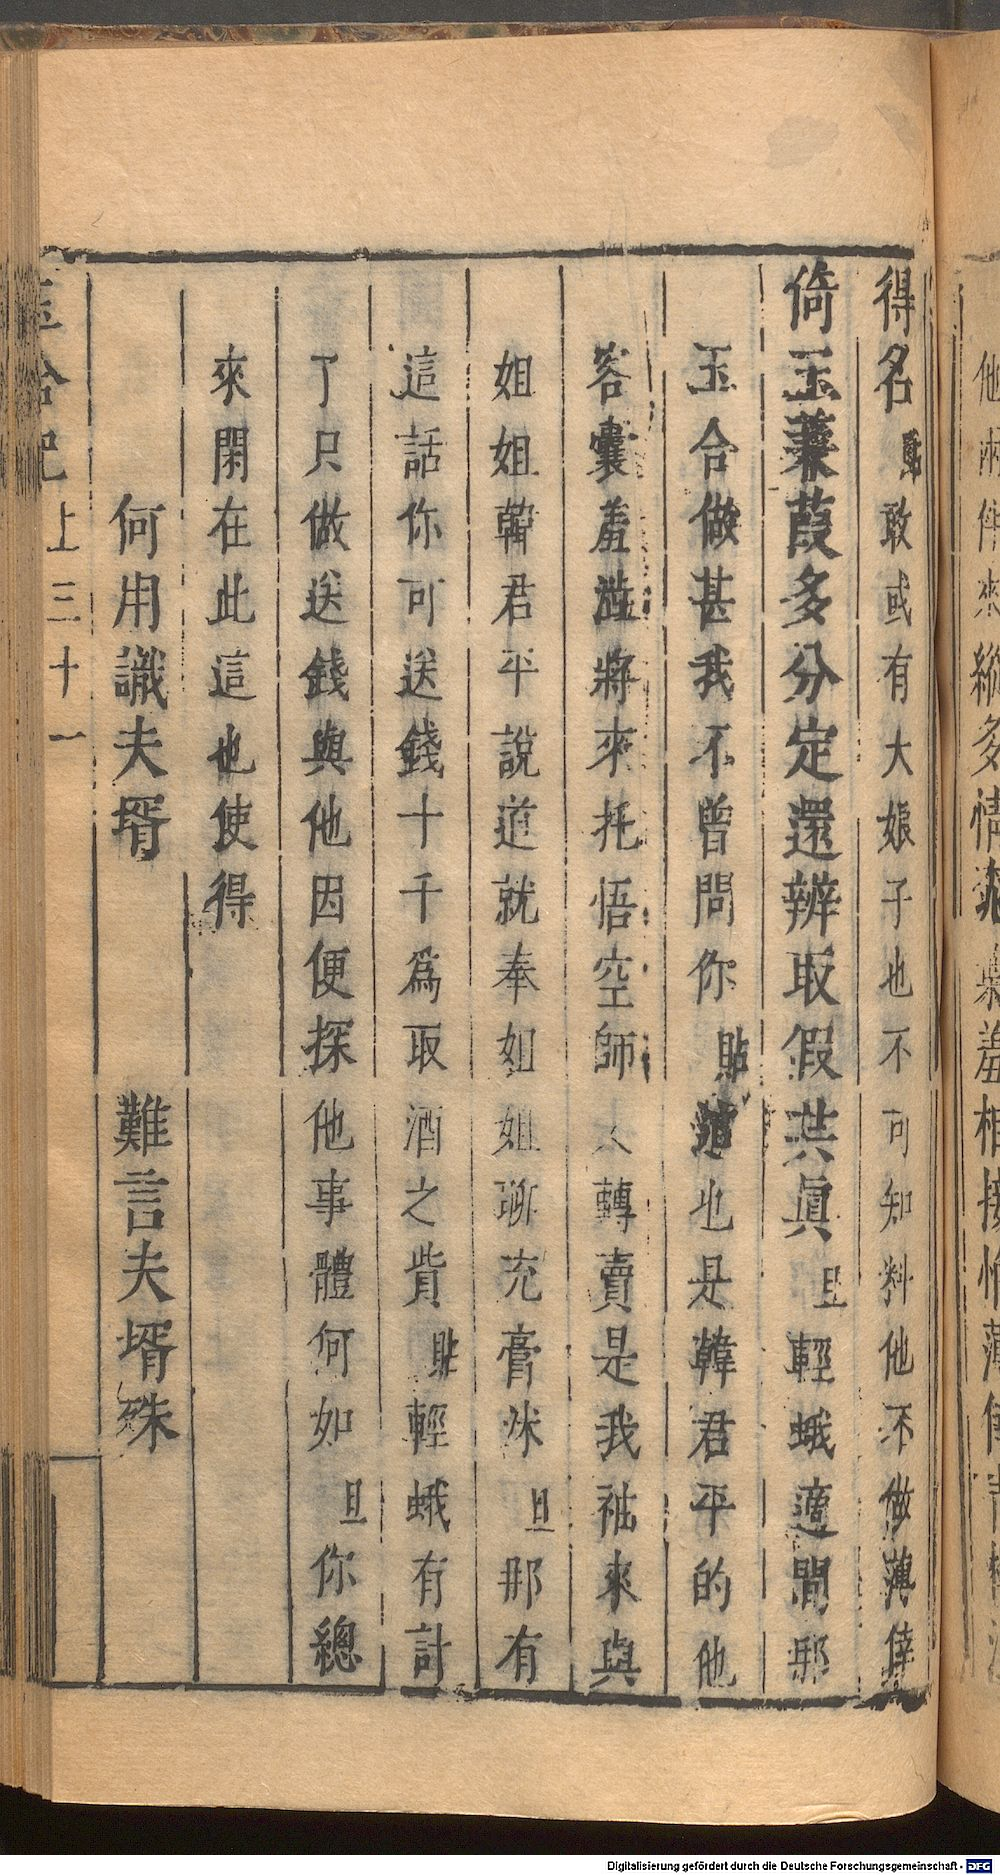 得名貼敢或有大娘子也不可知料他不做薄倖
倚玉蒹葭多分定還辨取假共眞旦輕蛾適間那
玉合做甚我不曾問你貼這也是韓君平的他
客囊羞澁將來托悟空師人轉賣是我袖來與
姐姐韓君平說道就奉姐姐聊充膏沐旦那有
這話你可送錢十千爲取酒之貲貼輕蛾有計
了只做送錢與他因便探他事體何如旦你總
來閑在此這也使得
何用識夫壻 難言夫壻殊
玉合記 上 三十一
Digitalisierung gefördert durch die Deutsche Forschungsgemeinschaft - DFG